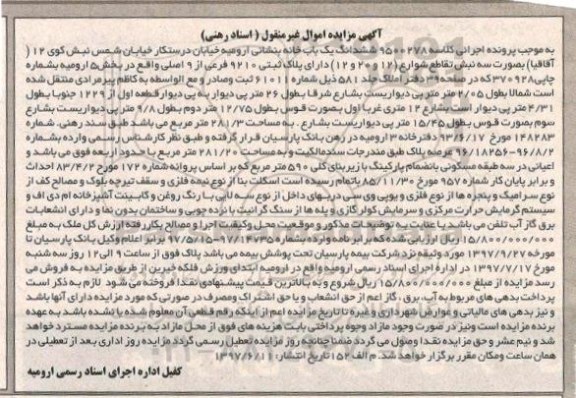 آگهی مزایده اموال غیرمنقول ( اسناد رهنی)
به موجب پرونده اجرائی کلاسه ۹۵۰۰۲۷۸ ششدانگ یک باب خانه بنشانی ارومیه خیابان درستکار خیابان شمس نبش کوی ۱۲ (
آقاقیا) بصورت سه نبش تقاطع شوارع (۱۲و ۲۰ و ۱۲) دارای پلاک ثبتی ۹۲۱۰ فرعی از ۹ اصلی واقع در بخش۵ ارومیه بشماره
چاپی۳۷۰۹۲۸ که در صفحه ۳۹ دفتر املاک جلد ۵۸۱ ذیل شماره ۶۱۰۱۱۰ ثبت وصادر و مع الواسطه به کاظم پیرمرادی منتقل شده
است شمالا بطول ۲/۰۵ متر متر پی دیواریست بشارع شرقا بطول ۲۶ متر پی دیوار به پی دیوار قطعه اول از ۱۲۲۹ جنوبا بطول
۴/۳۱ متر پی دیوار است بشارع ۱۲ متری غربا اول بصورت قوس بطول ۱۲/۷۵ متر دوم بطول ۹/۸ متر پی دیواریست بشارع
سوم بصورت قوس بطول ۱۵/۴۵ متر پی دیواریست بشارع . به مساحت ۲۸۱/۳ متر مربع می باشد طبق سند رهنی. شماره
۱۴۸۲۸۳ مورخ ۹۳/۶/۱۷ دفترخانه ۳ ارومیه در رهن بانک پارسیان قرار گرفته و طبق نظر کارشناس رسمی وارده بشماره
۹۶/۸/۲-۹۶/۱۸۲۵۶ عرصه پلاک طبق مندرجات سندمالکیت و به مساحت ۲۸۱/۲۰ متر مربع با حدود اربعه فوق می باشد و
اعیانی در سه طبقه مسکونی بانضمام پارکینگ با زیربنای کلی ۵۹۰ متر مربع که بر اساس پروانه شماره ۱۷۲ مورخ ۸۳/۴/۲ احداث
و برابر پایان کار شماره ۹۵۷ مورخ ۸۵/۱۱/۳۰ باتمام رسیده است اسکلت بنا از نوع نیمه فلزی و سقف تیرچه بلوک و مصالح کف از
نوع سرامیک و پنجره ها از نوع فلزی و یوپی وی سی دربهای داخل از نوع سه لایی با رنگ روغن و کابینت آشپزخانه ام دی اف و
سیستم گرمایش حرارت مرکزی و سرمایش کولر گازی و پله ها از سنگ گرانیت با نرده چوبی و ساختمان بدون نما و دارای انشعابات
برق گاز آب تلفن می باشد با عنایت به توضیحات مذکور و موقعیت محل وکیفیت اجرا و مصالح بکار رفته ارزش کل ملک به مبلغ
۱۵/۸۰۰/۰۰۰/۰۰۰ ریال ارزیابی شده که برابر نامه وارده بشماره ۹۷/۱۴۷۳۵-۹۷/۵/۱۵ برابر اعلام وکیل بانک پارسیان تا
مورخه ۱۳۹۷/۹/۲۷ مورد وثیقه نزد شرکت بیمه پارسیان تحت پوشش بیمه می باشد پلاک فوق از ساعت ۹ الی ۱۲ روز سه شنبه
مورخ ۱۳۹۷/۷/۱۷ در اداره اجرای اسناد رسمی ارومیه واقع در ارومیه ابتدای ورزش فلکه خیبرین از طریق مزایده به فروش می
رسد مزایده از مبلغ ۱۵/۸۰۰/۰۰۰/۰۰۰ ریال شروع و به بالاترین قیمت پیشنهادی نقدا فروخته می شود لازم به ذکر است
پرداخت بدهی های مربوط به آب، برق ، گاز اعم از حق انشعاب و یا حق اشتراک ومصرف در صورتی که مورد مزایده دارای آنها باشد
و نیز بدهی های مالیاتی و عوارض شهرداری و غیره تا تاریخ مزایده اعم از اینکه رقم قطعی آن معلوم شده یا نشده باشد به عهده
برنده مزایده است ونیز در صورت وجود مازاد وجوه پرداختی بابت هزینه های فوق از محل مازاد به برنده مزایده مسترد خواهد
شد و نیم عشر و حق مزایده نقدا وصول می گردد ضمنا چنانچه روز مزایده تعطیل رسمی گردد مزایده روز اداری بعد از تعطیلی در
همان ساعت ومکان مقرر برگزار خواهد شد. م الف ۱۵۲ تاریخ انتشار: ۱۳۹۷/۶/۱۱
کفیل اداره اجرای اسناد رسمی ارومیه